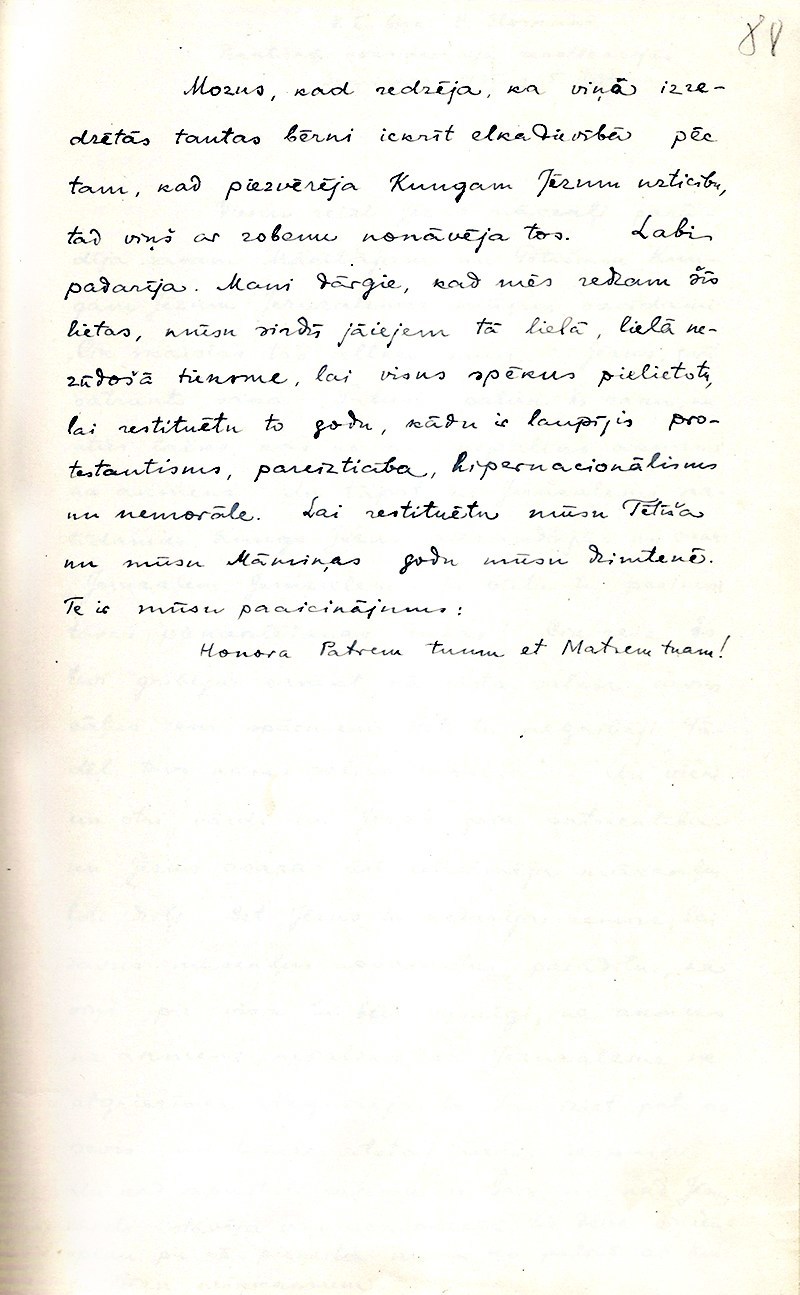 81
Mozus, kad redzēja, ka viņā izre-
dzētās tautas bērni iekrīt elkadievībā pēc
tam, kad piezvērēja Kungam Jēzum uzticību,
tad viņš ar zobenu nonāvēja tos. Labi
padarīja. Mani dārgie, kad mēs redzam šīs
lietas, mūsu sirdīs jāieiem tā lielā, lielā ne-
zūdošā tieksme, lai visus spēkus pielietotu,
lai restituētu to godu, kādu ir laupījis pro-
testantisms, pareizticība, hipernacionālisms
un nemorāle. Lai restituētu mūsu Tētiša
un mūsu Māmiņas godu mūsu dzimtenē.
Te ir mūsu paaicinājums:
Honora Patrem tuum et Matrem tuam!